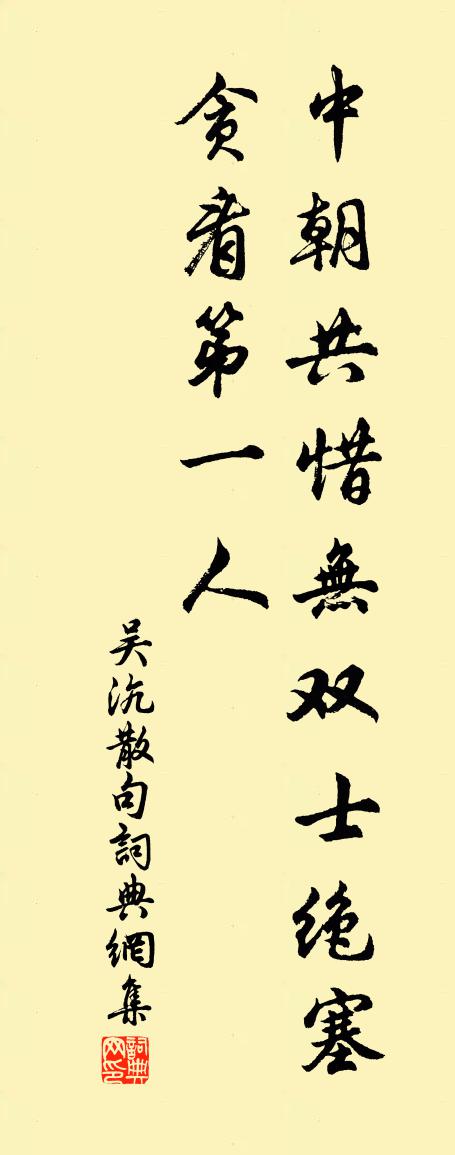 中朝共惜無双士绝塞
贪看第一人
吴沉散句詞典網集
詞典网印